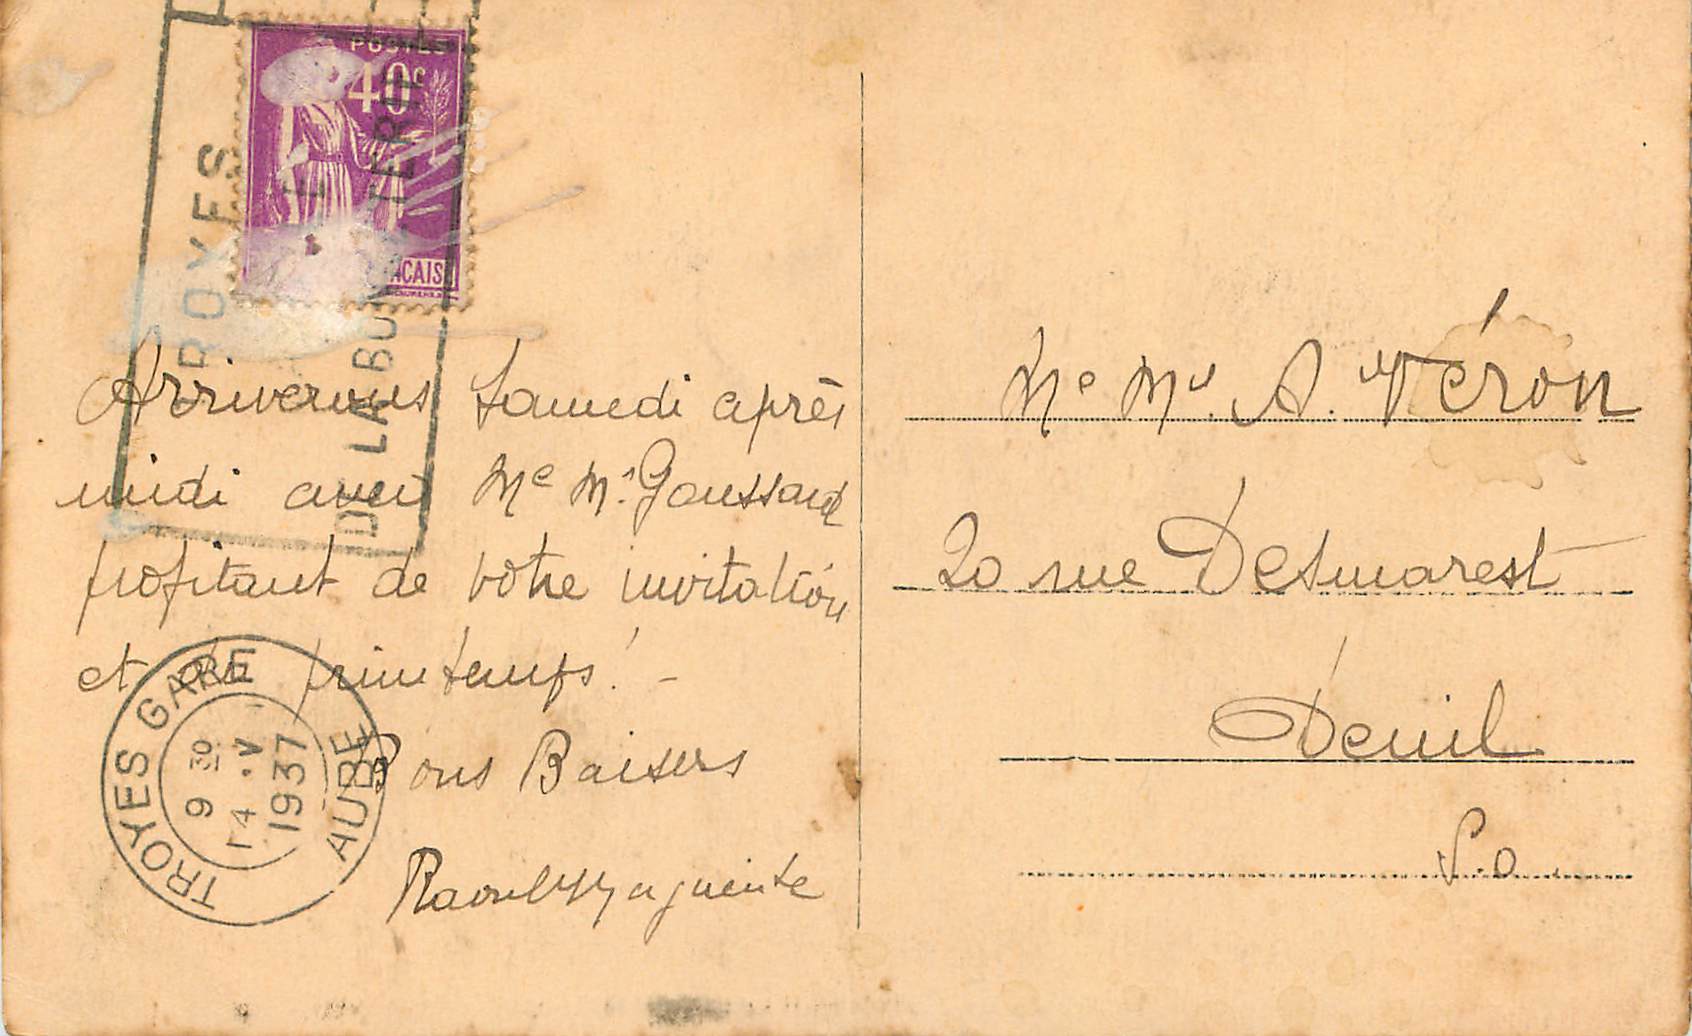 POSTES
40c
TROYES
DE LA BONNETERIE
Arriverons Samedi après
midi avec Me Mr. Goussard
profitant de votre invitation
et du printemps! -
Bons Baisers
Raoul Marguerite
TROYES GARE
9 30
14 . V
1937
AUBE
Me Mr. A. Véron
20 rue Desmarest
Deuil
S.O